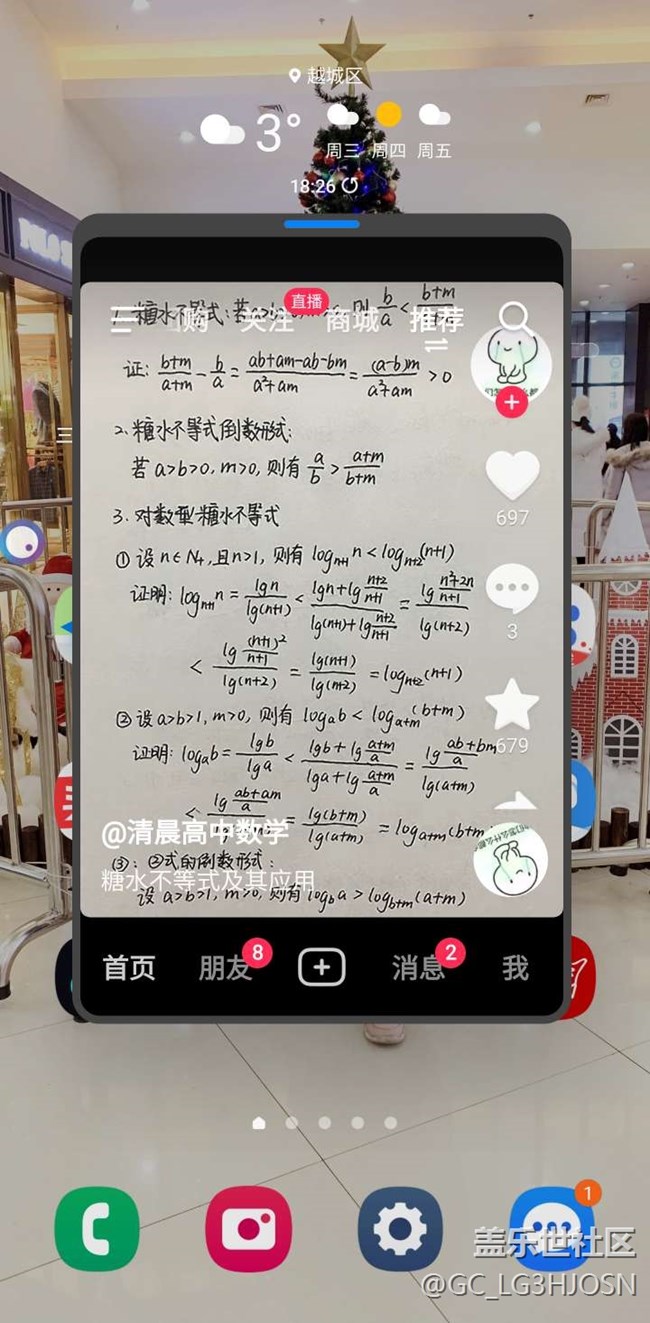 越城区
3°
周三 周四 周五
18:26
直播
购 关注 商城 推荐
1. 糖水不等式: 若a>b>0, 则 b/a < (b+m)/
证: (b+m)/(a+m) - b/a = (ab+am-ab-bm)/(a²+am) = (a-b)m/(a²+am) > 0
2. 糖水不等式倒数形式:
若 a>b>0, m>0, 则有 a/b > (a+m)/(b+m)
3. 对数型糖水不等式
① 设 n∈N₊, 且n>1, 则有 logₙ₊₁n < logₙ₊₂(n+1)
证明: logₙ₊₁n = lgn/lg(n+1) < (lgn+lg (n+2)/(n+1))/(lg(n+1)+lg (n+2)/(n+1)) = (lg (n²+2n)/(n+1))/lg(n+2)
< (lg (n+1)²/(n+1))/lg(n+2) = lg(n+1)/lg(n+2) = logₙ₊₂(n+1)
② 设 a>b>1, m>0, 则有 logₐb < logₐ₊ₘ(b+m)
证明: logₐb = lgb/lga < (lgb+lg (a+m)/a)/(lga+lg (a+m)/a) = (lg (ab+bm)/a)/lg(a+m)
< (lg (ab+am)/a)/ = lg(b+m)/lg(a+m) = logₐ₊ₘ(b+m
③: ②式的倒数形式:
设 a>b>1, m>0, 则有 log_b a > log_b+m (a+m)
697
3
679
@清晨高中数学
糖水不等式及其应用
首页 朋友 8 消息 2 我
1
盖乐世社区
@GC_LG3HJOSN